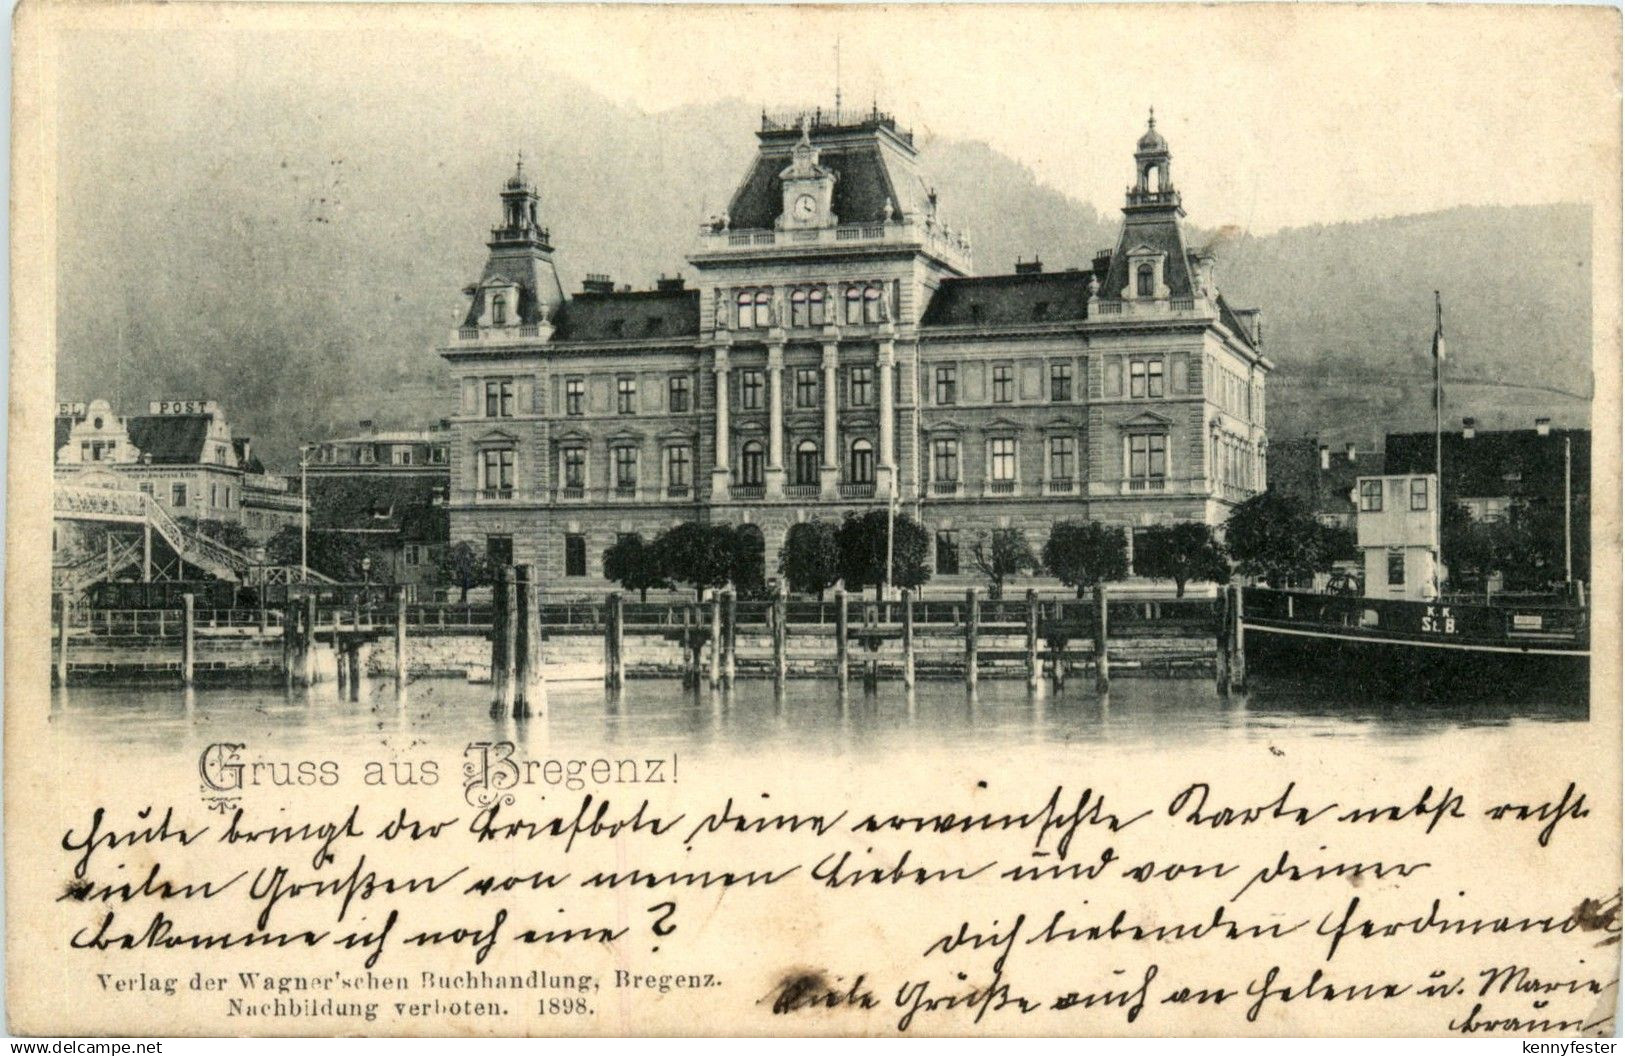 EL POST
K. K.
St. B.
Gruss aus Bregenz!
Heute bringt der Briefbote deine erwünschte Karte nebst recht
vielen Grüßen von meinen Lieben und von deiner
bekomme ich noch eine? dich liebenden Ferdinanda
Verlag der Wagner'schen Buchhandlung, Bregenz.
Nachbildung verboten. 1898.
Viele Grüße auch an Helene u. Marie
braun.
www.delcampe.net
kennyfester